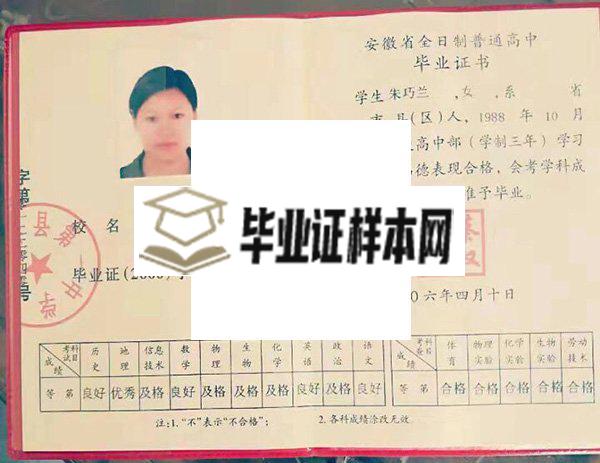 安徽省全日制普通高中
毕业证书
学生 朱巧兰 ,女,系 省
市 县(区)人,1988 年 10 月
高中部(学制三年)学习
德表现合格,会考学科成
准予毕业。
校 名
毕业证(2006)字
〇六年四月十日
毕业证样本网
县第一中学
考试科目 历史 地理 信息技术 数学 物理 生物 化学 英语 政治 语文
成绩 等第 良好 优秀 及格 良好 及格 及格 及格 良好 及格 良好
考查科目 体育 物理实验 化学实验 生物实验 劳动技术
成绩 等第 合格 合格 合格 合格 合格
注:1.“不”表示“不合格”; 2.各科成绩涂改无效。